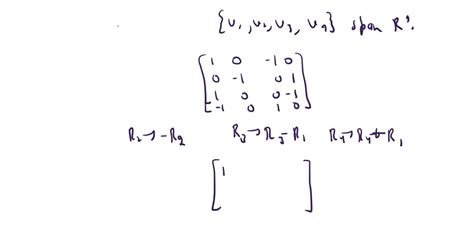 {v₁, v₂, v₃, v₄} span R³.
[1 0 -1 0
0 -1 0 1
1 0 0 -1
-1 0 1 0]
R₂→-R₂ R₃→R₃-R₁ R₄→R₄+R₁
[1 ]